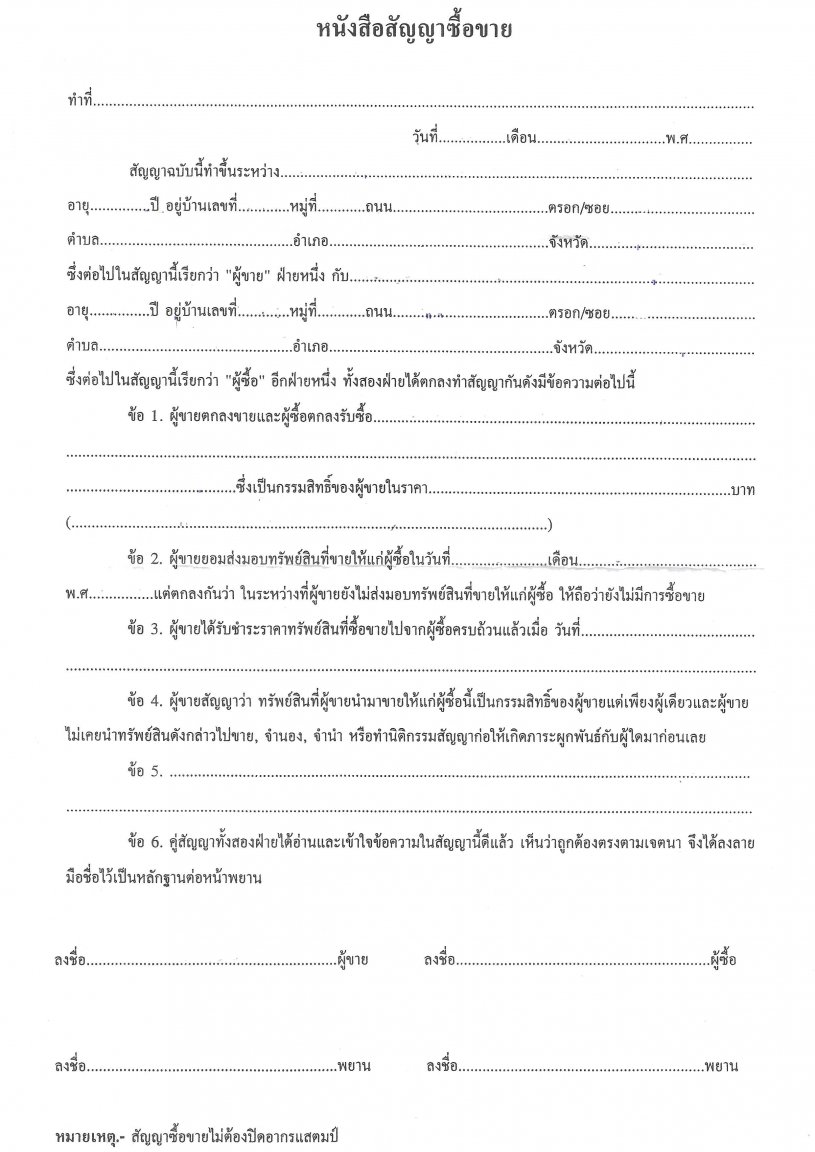 หนังสือสัญญาซื้อขาย
ทำที่..........................................................................................................................................
วันที่.................เดือน................................พ.ศ................
สัญญาฉบับนี้ทำขึ้นระหว่าง.......................................................................................................
อายุ...............ปี อยู่บ้านเลขที่.............หมู่ที่............ถนน.......................................ตรอก/ซอย....................................
ตำบล................................................อำเภอ.......................................................จังหวัด.........................................
ซึ่งต่อไปในสัญญานี้เรียกว่า "ผู้ขาย" ฝ่ายหนึ่ง กับ....................................................................................................
อายุ...............ปี อยู่บ้านเลขที่.............หมู่ที่............ถนน.......................................ตรอก/ซอย....................................
ตำบล................................................อำเภอ........................................................จังหวัด........................................
ซึ่งต่อไปในสัญญานี้เรียกว่า "ผู้ซื้อ" อีกฝ่ายหนึ่ง ทั้งสองฝ่ายได้ตกลงทำสัญญากันดังมีข้อความต่อไปนี้
ข้อ 1. ผู้ขายตกลงขายและผู้ซื้อตกลงรับซื้อ................................................................................................
..........................................................................................................................................................................
..........................................ซึ่งเป็นกรรมสิทธิ์ของผู้ขายในราคา...........................................................................บาท
(......................................................................................................................)
ข้อ 2. ผู้ขายยอมส่งมอบทรัพย์สินที่ขายให้แก่ผู้ซื้อในวันที่........................เดือน............................................
พ.ศ................แต่ตกลงกันว่า ในระหว่างที่ผู้ขายยังไม่ส่งมอบทรัพย์สินที่ขายให้แก่ผู้ซื้อ ให้ถือว่ายังไม่มีการซื้อขาย
ข้อ 3. ผู้ขายได้รับชำระราคาทรัพย์สินที่ซื้อขายไปจากผู้ซื้อครบถ้วนแล้วเมื่อ วันที่...........................................
..........................................................................................................................................................................
ข้อ 4. ผู้ขายสัญญาว่า ทรัพย์สินที่ผู้ขายนำมาขายให้แก่ผู้ซื้อนี้เป็นกรรมสิทธิ์ของผู้ขายแต่เพียงผู้เดียวและผู้ขาย
ไม่เคยนำทรัพย์สินดังกล่าวไปขาย, จำนอง, จำนำ หรือทำนิติกรรมสัญญาก่อให้เกิดภาระผูกพันธ์กับผู้ใดมาก่อนเลย
ข้อ 5. ................................................................................................................................................
..........................................................................................................................................................................
ข้อ 6. คู่สัญญาทั้งสองฝ่ายได้อ่านและเข้าใจข้อความในสัญญานี้ดีแล้ว เห็นว่าถูกต้องตรงตามเจตนา จึงได้ลงลาย
มือชื่อไว้เป็นหลักฐานต่อหน้าพยาน
ลงชื่อ..............................................................ผู้ขาย ลงชื่อ...............................................................ผู้ซื้อ
ลงชื่อ..............................................................พยาน ลงชื่อ.............................................................พยาน
หมายเหตุ.- สัญญาซื้อขายไม่ต้องปิดอากรแสตมป์